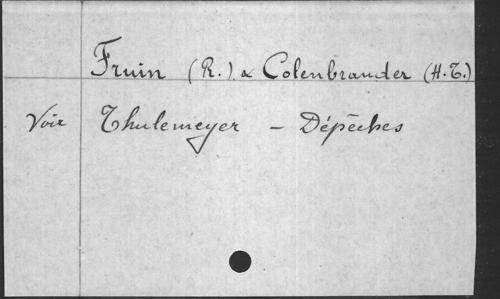 Fruin (R.) & Colenbrander (H.T.)
Voir Thulemeyer - Dépêches